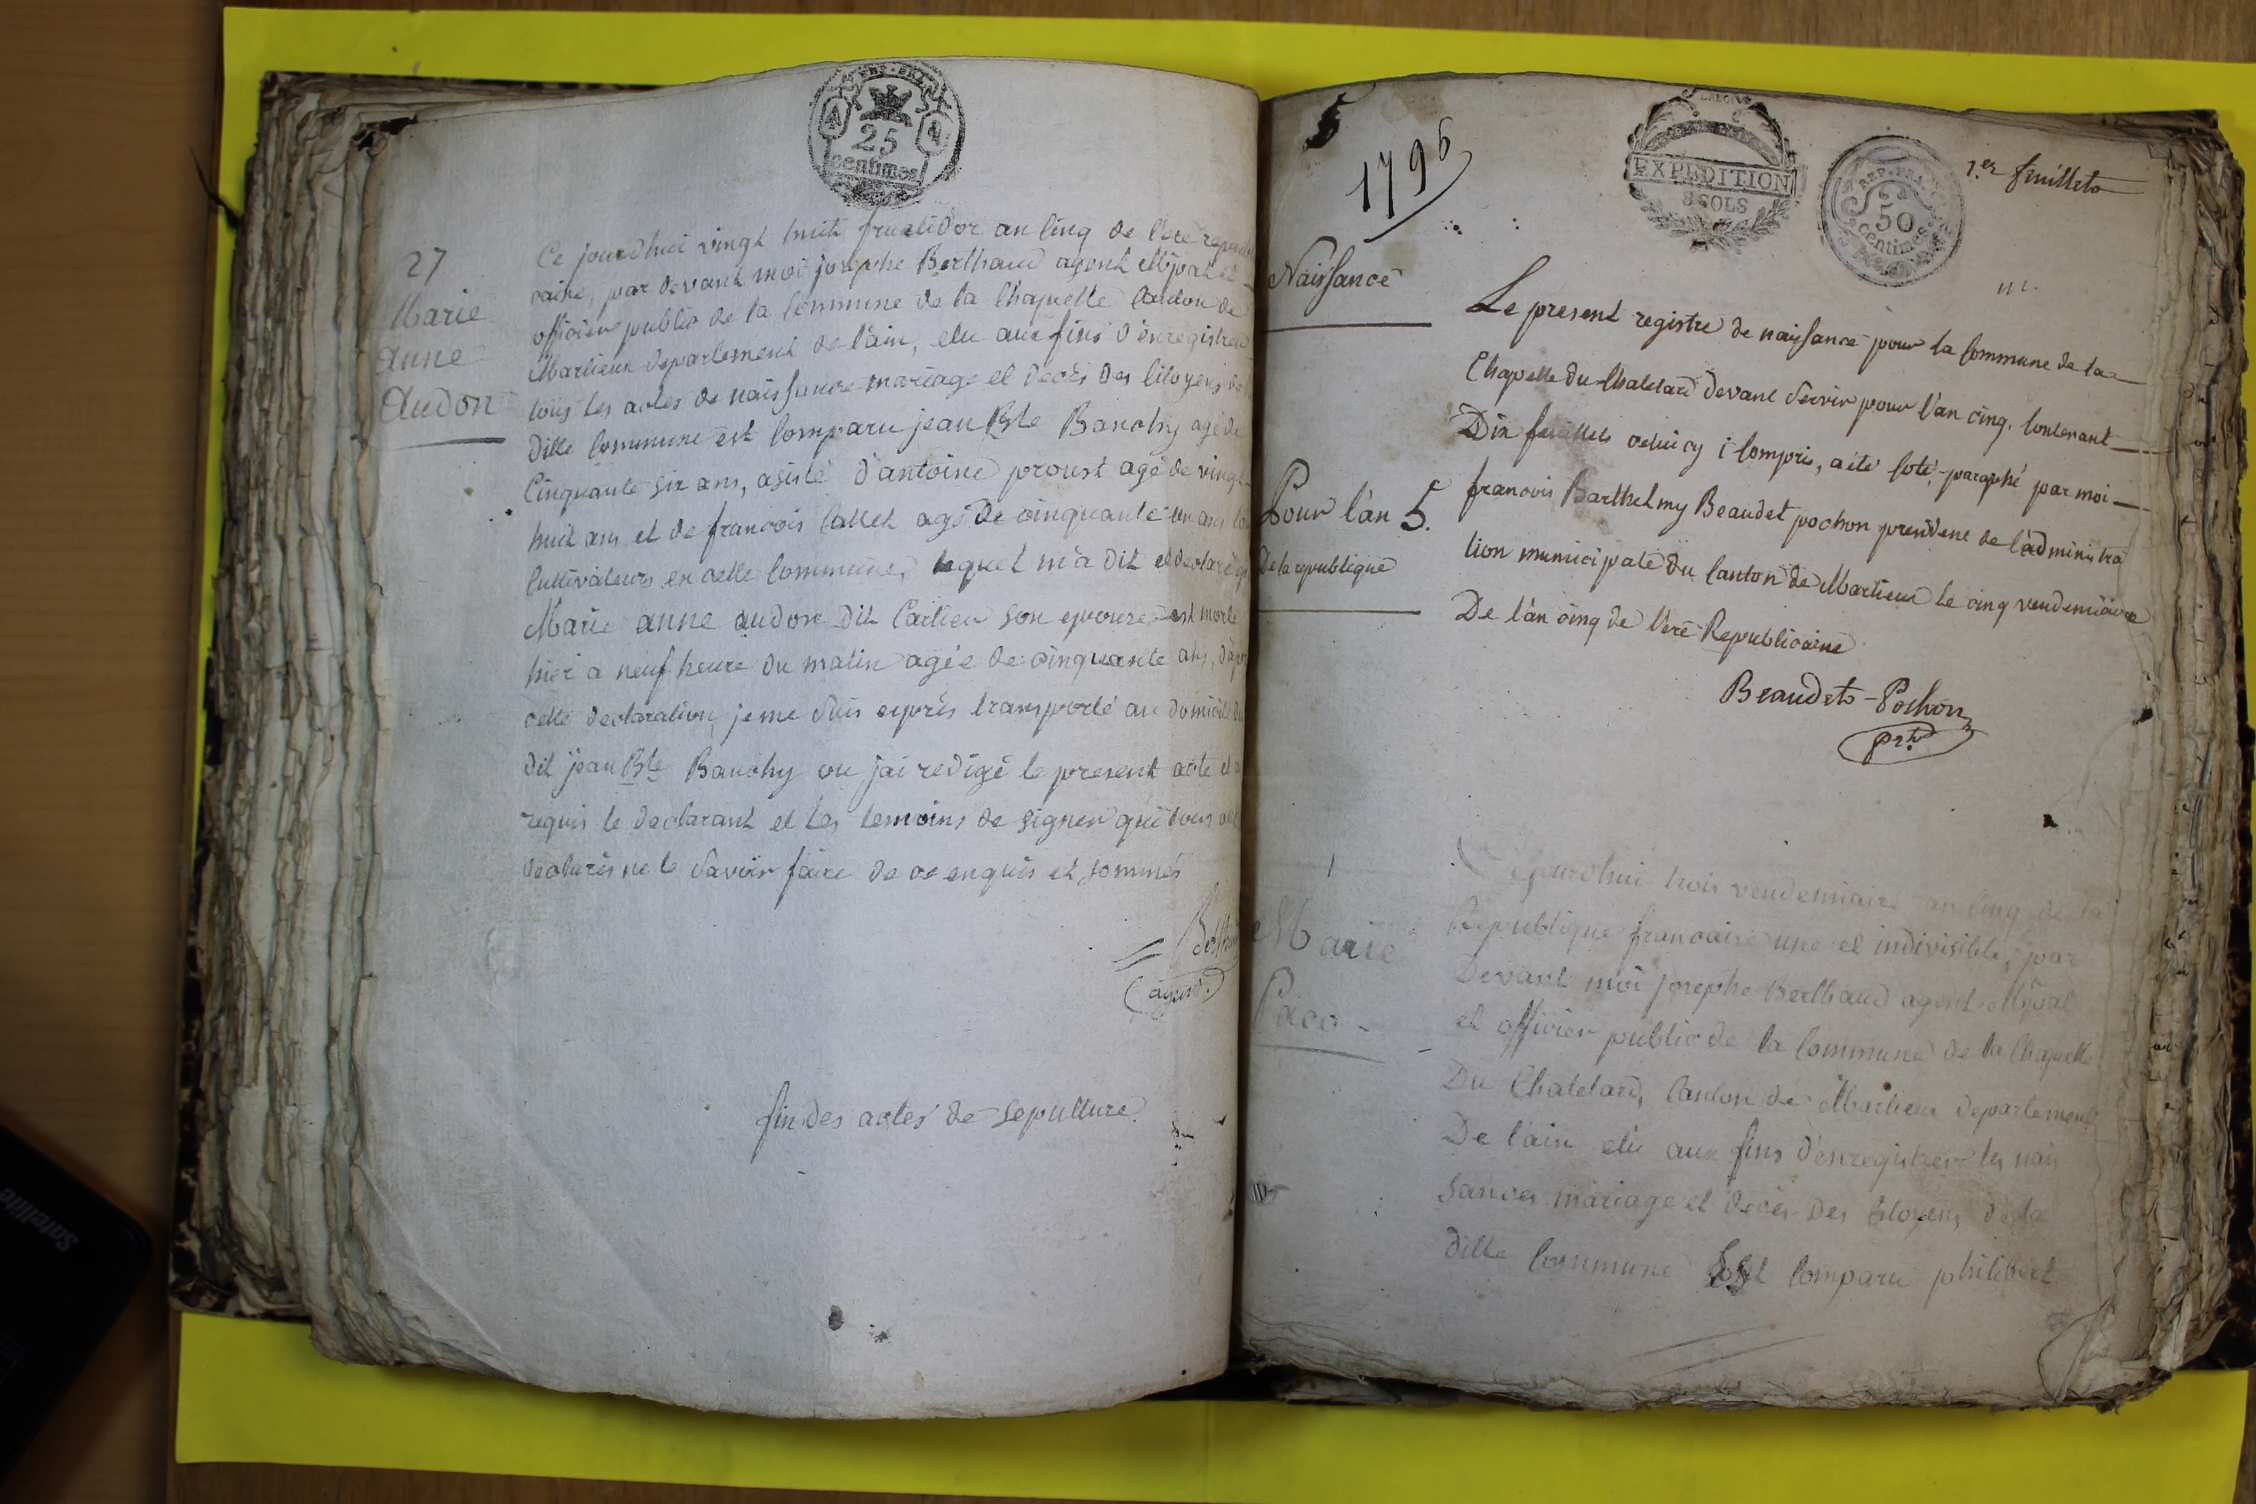 25
centimes
27
Marie
anne
audon
Ce jourdhui vingt huit fructidor an cinq de l'ere republi
caine, par devant moi josephe Berthaud agent Mpal et
officier public de la Commune de la Chapelle Canton de
Marlieux departement de l'ain, elu aux fins d'enregistrer
tous les actes de naissance mariage et decès des Citoyens de
ditte Commune est Comparu jean Bte Banchy agé de
Cinquante six ans, asisté d'antoine proust agé de vingt
huit ans et de francois Callet agé de cinquante un ans
Cultivateurs en cette Commune, lequel m'a dit et declaré
Marie anne audon dit Cartier son epouse est morte
hier a neuf heure du matin agée de cinquante ans, d'apr
cette declaration, je me suis exprès transporté au domicile du
dit jean Bte Banchy ou jai redigé le present acte et
requis le declarant et les temoins de signer qui tous ont
declarés ne le savoir faire de ce enquis et sommés
agent.
fin des actes de sepulture.
1796
EXPEDITION
8 SOLS
REP. FRA
50
centimes
1.er feuillet
Naissance
Pour l'an 5.
De la republique
Le present registre de naissance pour la Commune de la
Chapelle du Chatelard devant servir pour l'an cinq. Contenant
Dix feuillets celui cy i Compris, a été Coté, paraphé par moi
francois Barthelmy Beaudet pochon president de l'administra
tion municipale du Canton de Marlieux le cinq vendemiaire
De l'an cinq de l'ere Republicaine
Beaudet-Pochon
prt
1
Marie
Paco
Cejourdhui trois vendemiaire an Cinq de la
Republique francaise une et indivisible, par
Devant moi josephe Berthaud agent Mpal
et officier public de la Commune de la Chapelle
Du Chatelard, Canton de Marlieux departement
De l'ain elu aux fins d'enregistrer les nais
sances mariage et decès des Citoyens de la
ditte Commune est Comparu philibert
Satellite